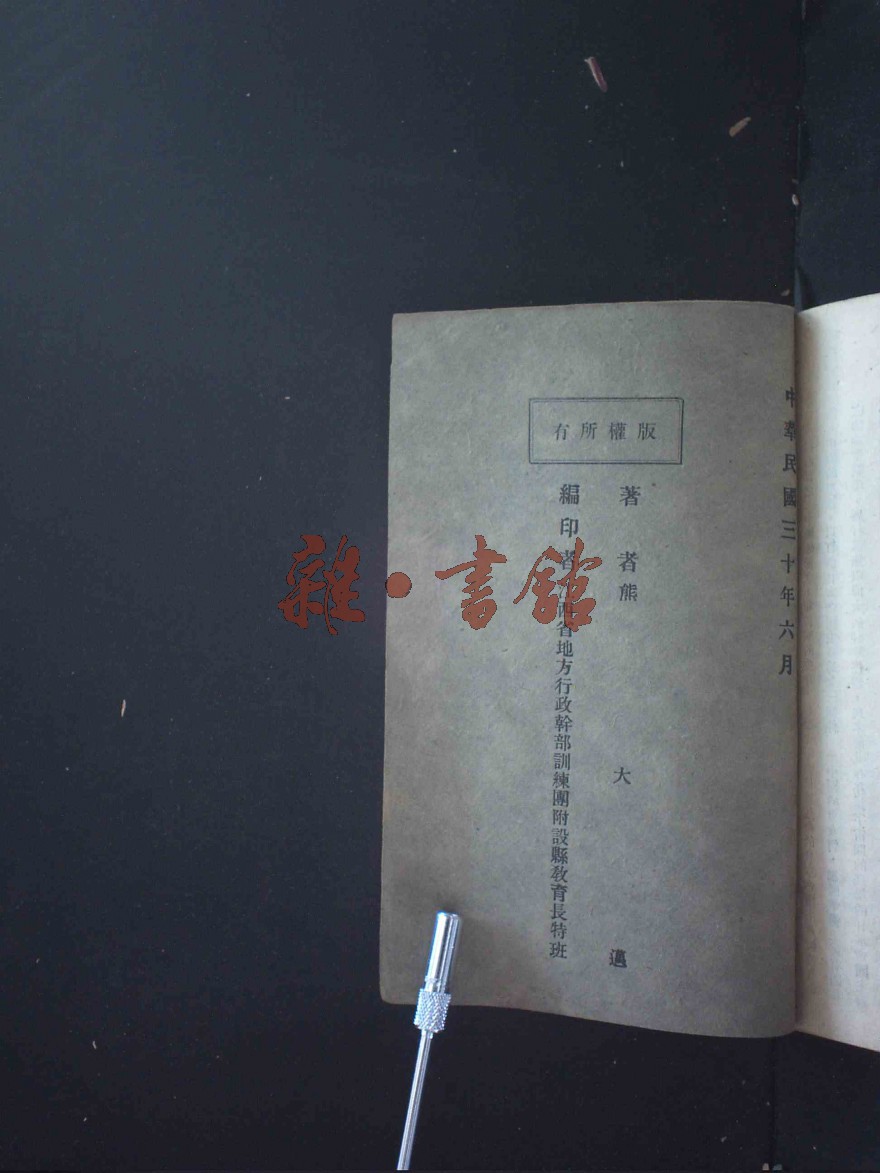 中華民國三十年六月
版權所有
著者熊大邁
編印者江西省地方行政幹部訓練團附設縣教育長特班
雜·書館